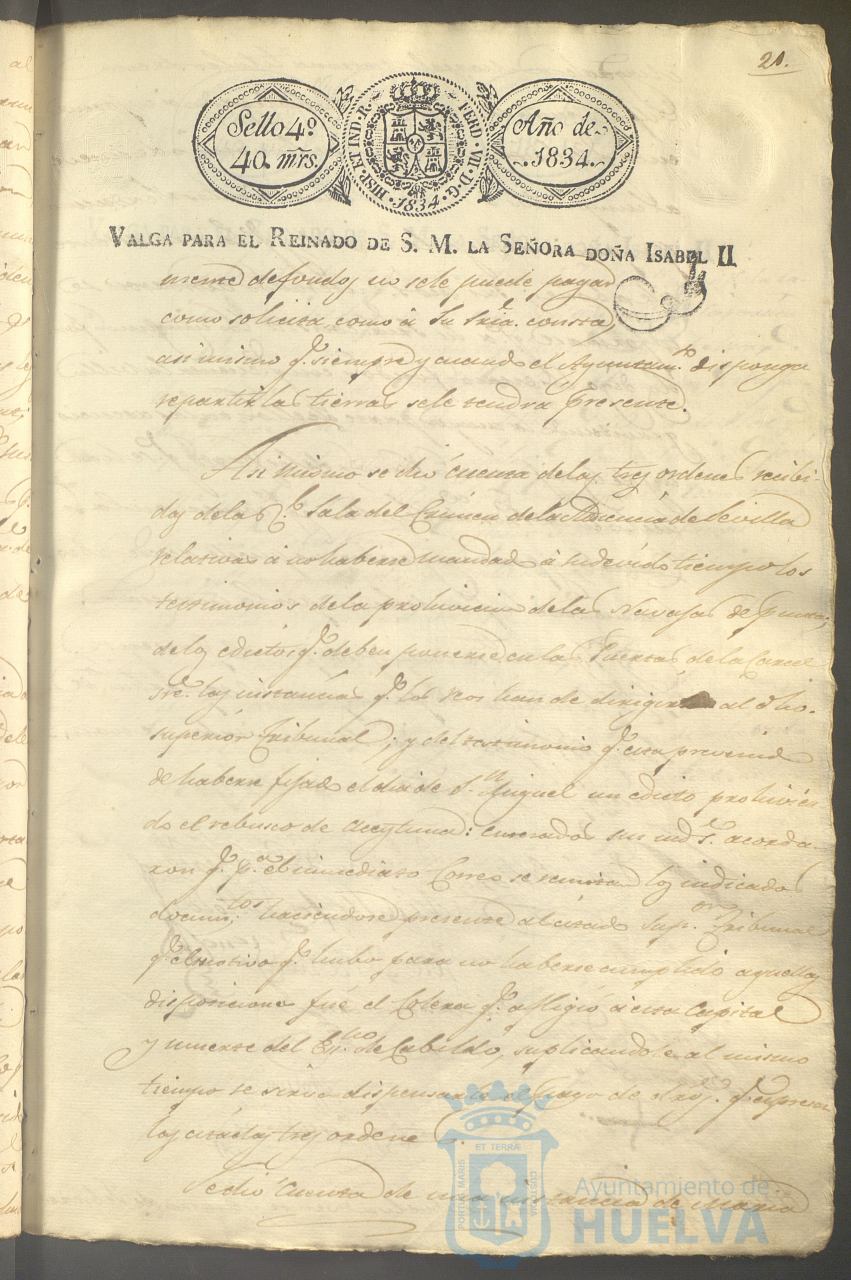 21.
Sello 4º
40. mrs.
HISP. ET IND. R. FERD. VII. D. G.
1834
Año de
1834.
VALGA PARA EL REINADO DE S. M. LA SEÑORA DOÑA ISABEL II
de fondos no se le puede pagar
como solicita, como á Su Sria. consta,
asi mismo q.e siempre y cuando el Ayuntam.to disponga
repartir las tierras se le tendra presente.
Asi mismo se dió cuenta de las tres ordenes recibi-
das de la R.l Sala del Crimen de la Audiencia de Sevilla
relativas á no haberse mandado á su devido tiempo los
testimonios de la prohivicion de las Navajas de punta;
de los edictos q.e deben ponerse en las Puertas de la Carcel
sre. las instancias q.e los reos han de dirigir al dho.
superior Tribunal; y del testimonio q.e esta prevenido
de haberse fijado el dia de S.n Miguel un edicto prohivien-
do el rebusco de Aceytuna: enterados sus mds. acorda-
ron q.e p.r el inmediato Correo se remitan los indicados
docum.tos haciendose presente al citado Sup.or Tribunal
q.e el motivo q.e hubo para no haberse cumplido aquellas
disposiciones fué el Colera q.e afligió á esta Capital
y muerte del Es.no de Cabildo, suplicandole al mismo
tiempo se sirva dispensarle el pago de q.e expresan
las citadas tres ordenes.
Se dió cuenta de una instancia de Maria
PORTUS MARIS ET TERRÆ CUSTODIA
Ayuntamiento de
HUELVA